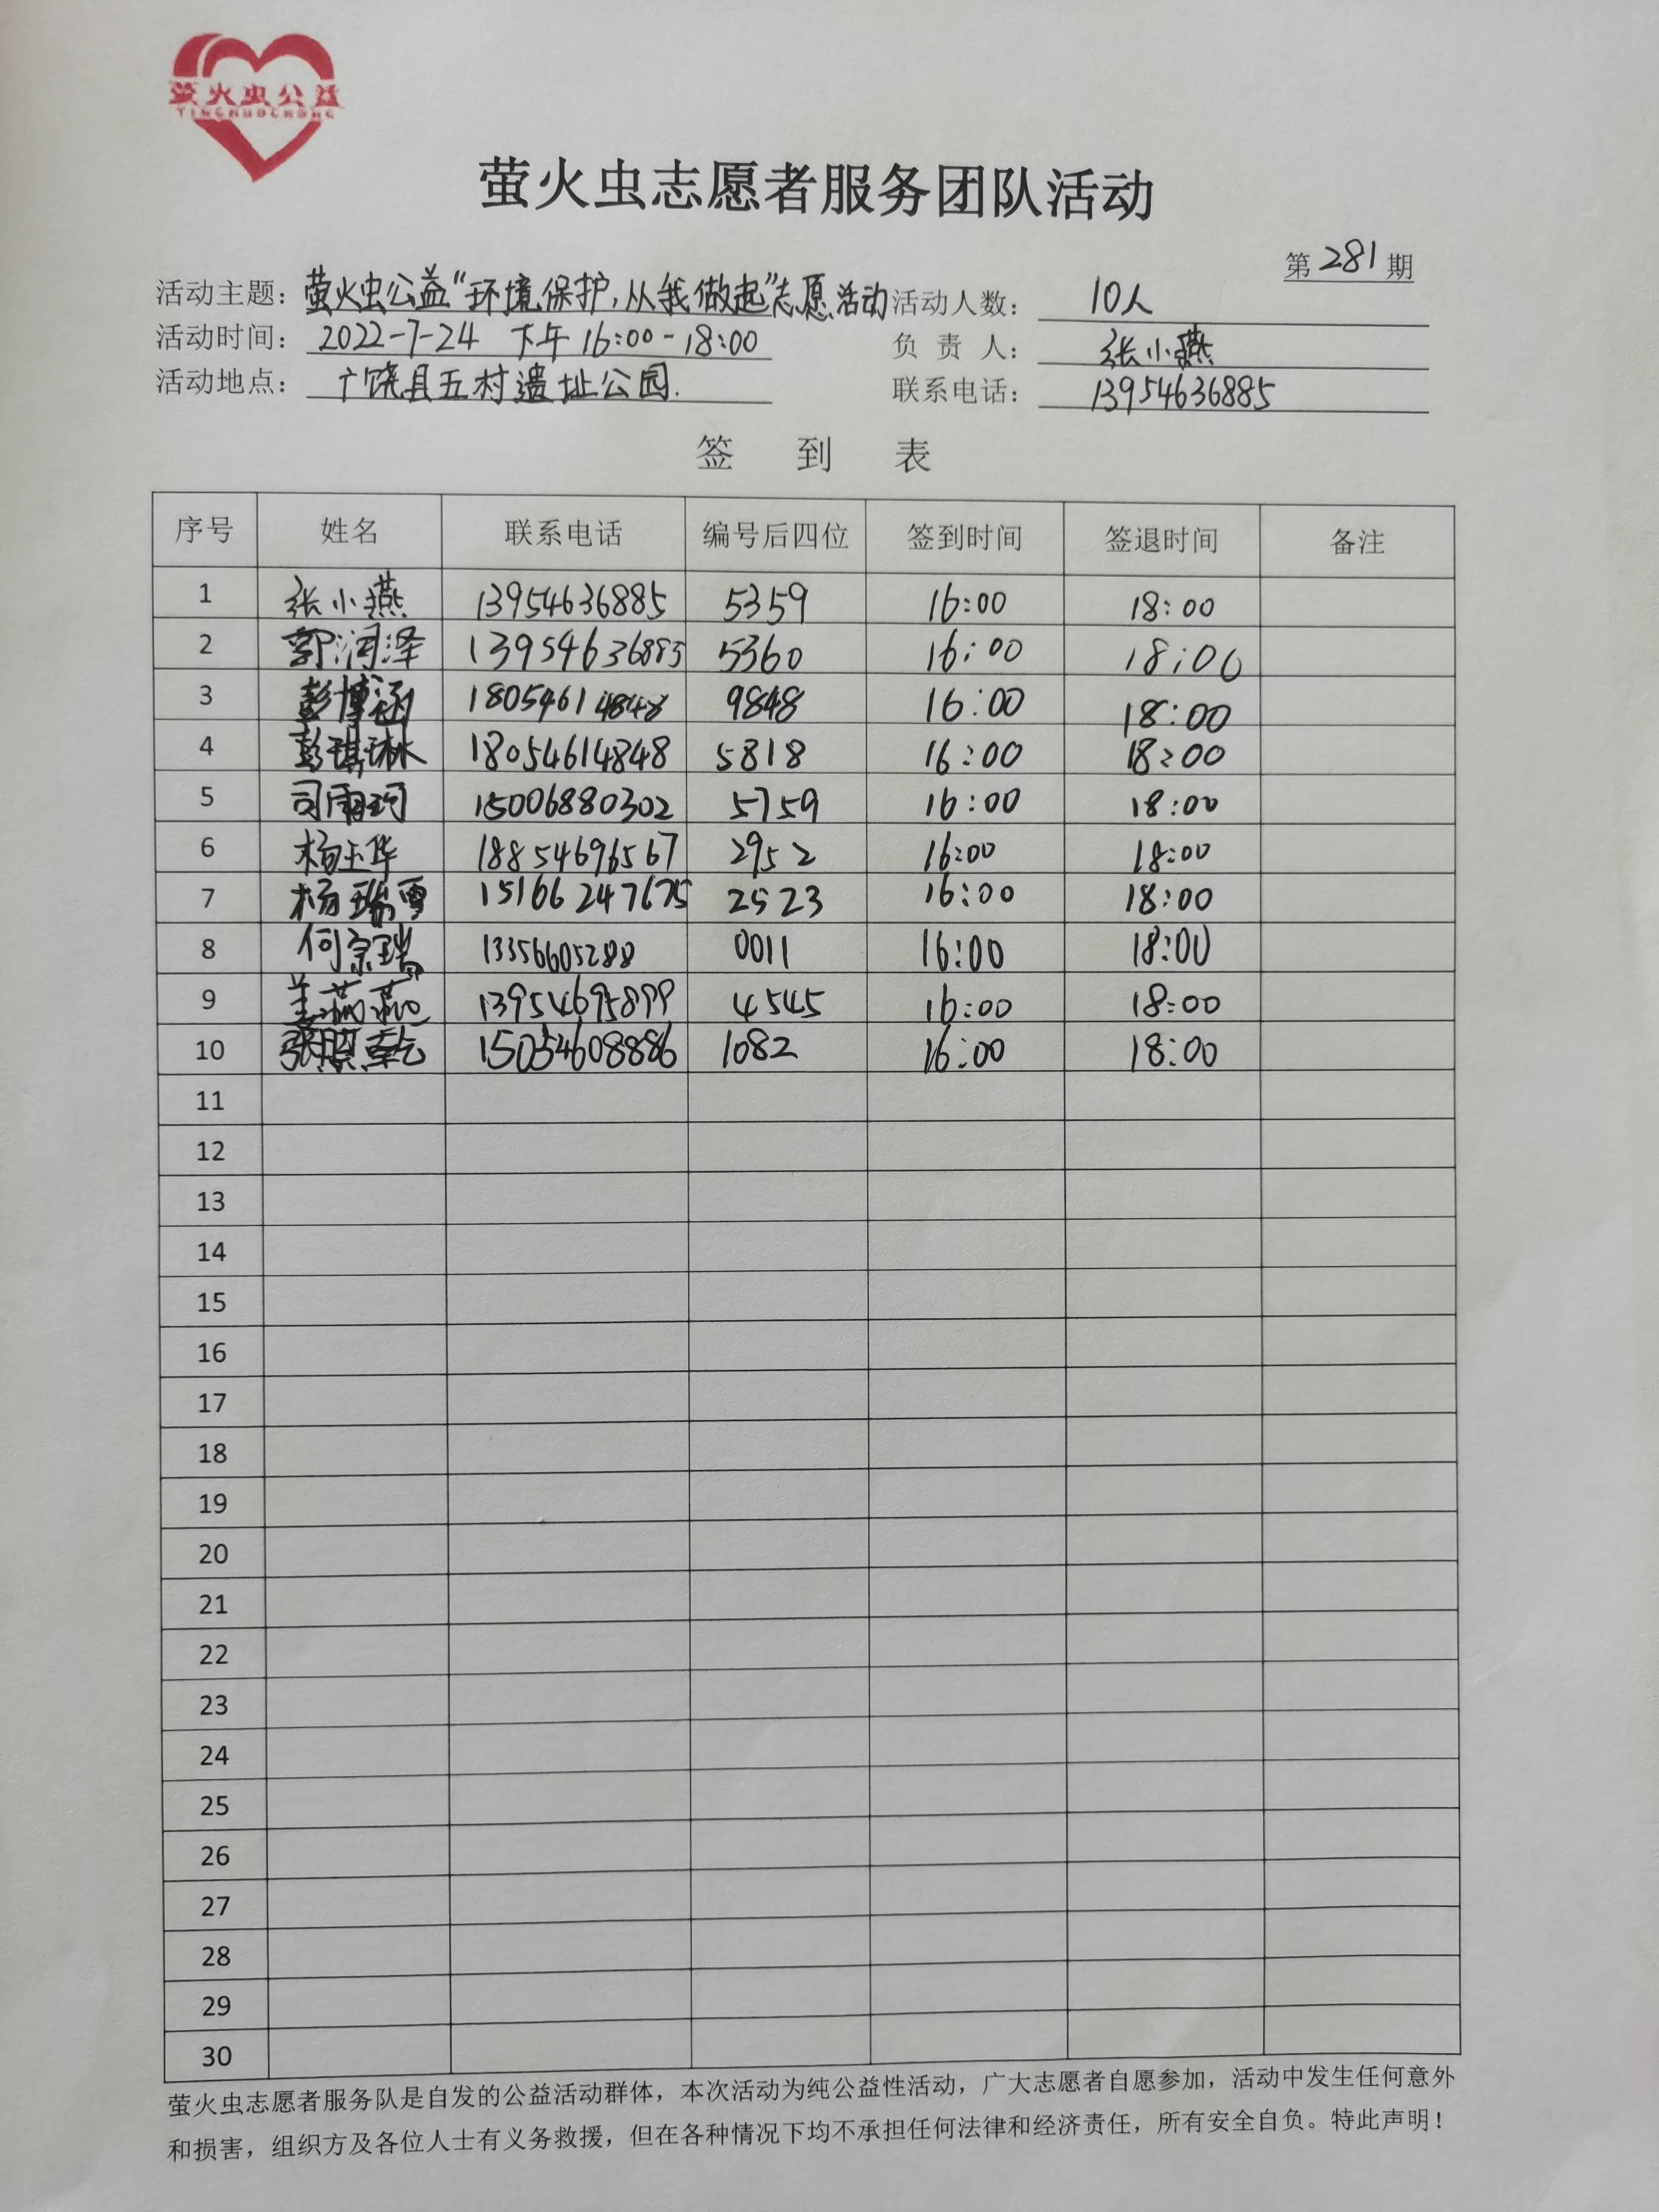 萤火虫公益
YINGHUOCHONG
萤火虫志愿者服务团队活动
第 281 期
活动主题：萤火虫公益“环境保护，从我做起”志愿活动 活动人数：10人
活动时间：2022-7-24 下午16:00-18:00 负责人：张小燕
活动地点：广饶县五村遗址公园. 联系电话：13954636885
签到表
序号 姓名 联系电话 编号后四位 签到时间 签退时间 备注
1 张小燕 13954636885 5359 16:00 18:00
2 郭润泽 13954636885 5360 16:00 18:00
3 彭博涵 18054614848 9848 16:00 18:00
4 彭琪琳 18054614848 5818 16:00 18:00
5 司雨珂 15006880302 5759 16:00 18:00
6 杨玉华 18854696567 2952 16:00 18:00
7 杨瑞雪 15166247675 2523 16:00 18:00
8 何宗瑞 13356605288 0011 16:00 18:00
9 13954695899 4545 16:00 18:00
10 15054608886 1082 16:00 18:00
11
12
13
14
15
16
17
18
19
20
21
22
23
24
25
26
27
28
29
30
萤火虫志愿者服务队是自发的公益活动群体，本次活动为纯公益性活动，广大志愿者自愿参加，活动中发生任何意外
和损害，组织方及各位人士有义务救援，但在各种情况下均不承担任何法律和经济责任，所有安全自负。特此声明！